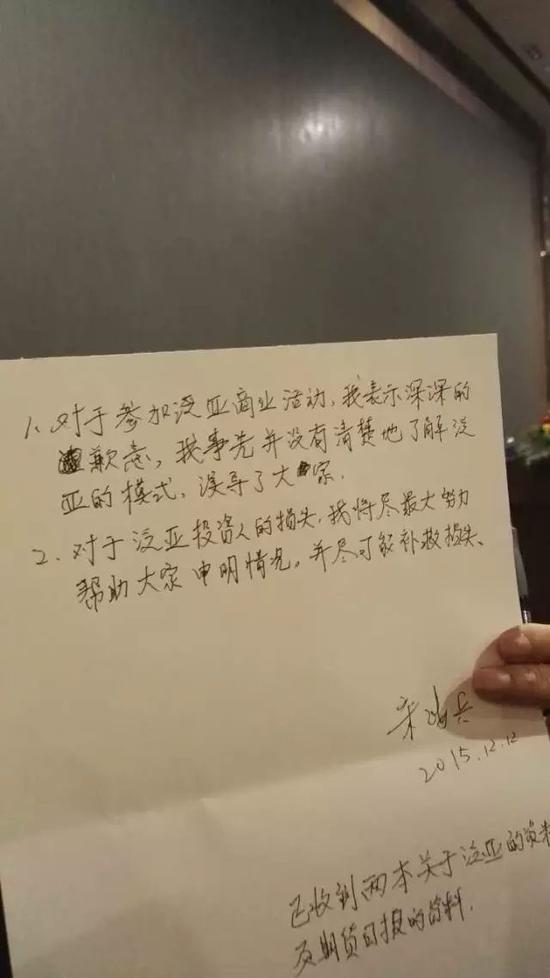 1、对于参加泛亚商业活动,我表示深深的
歉意,我事先并没有清楚地了解泛
亚的模式,误导了大家.
2、对于泛亚投资人的损失,我将尽最大努力
帮助大家申明情况,并尽可能补救损失、
宋鸿兵
2015.12.12
已收到两本关于泛亚的资料
及期货日报的资料.